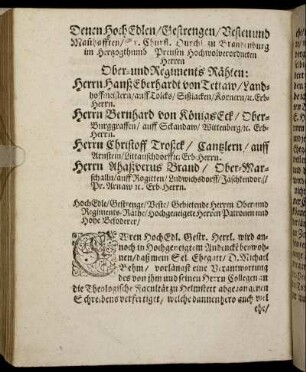 Denen HochEdlen/Gestrengen/Vesten und
Mañhafften/ Churfl. Durchl. zu Brandenburg
im Hertzogthumb Preusen Hochwolverordneten
Herren
Ober- und Regiments Rähten:
Herrn Hanß Eberhardt von Tettaw/ Land-
hoffmeistern/ auff Tolcks/ Sißlacken/Koenern/ ꝛc. Erb-
Herrn.
Herrn Bernhard von Königs Eck/ Ober-
Burggraffen/ auff Sckandaw/ Wittenberg/ ꝛc. Erb-
Herrn.
Herrn Christoff Troßek/ Cantzlern/ auff
Arnstein/ ꝛc. Erb-Herrn.
Herrn Ahaßverus Brand/ Ober-Mar-
schalln/ auff Rogitten/ Ludwichsdorff/ Jäschendorff/
Pr. Arnaw ꝛc. Erb-Herrn.
HochEdle/ Gestrenge/ Veste/ Gebietende Herren Ober- und
Regiments-Räthe/ Hochgeneigete Herren Patronen und
Hohe Befoderer/
EWren HochEdl. Gestr. Herrl. wird an-
noch in Hochgeneigtem Andenck beywoh-
nen/ daß mein Sel. Ehegatt/ D. Michael
Behm/ vorlängst eine Verantwortung
des von ihm und seinen Herrn Collegen an
die Theologische Facultät zu Helmstett abgegangenen
Schreibens verfertiget/ welche dannenhero auch viel
ehe/